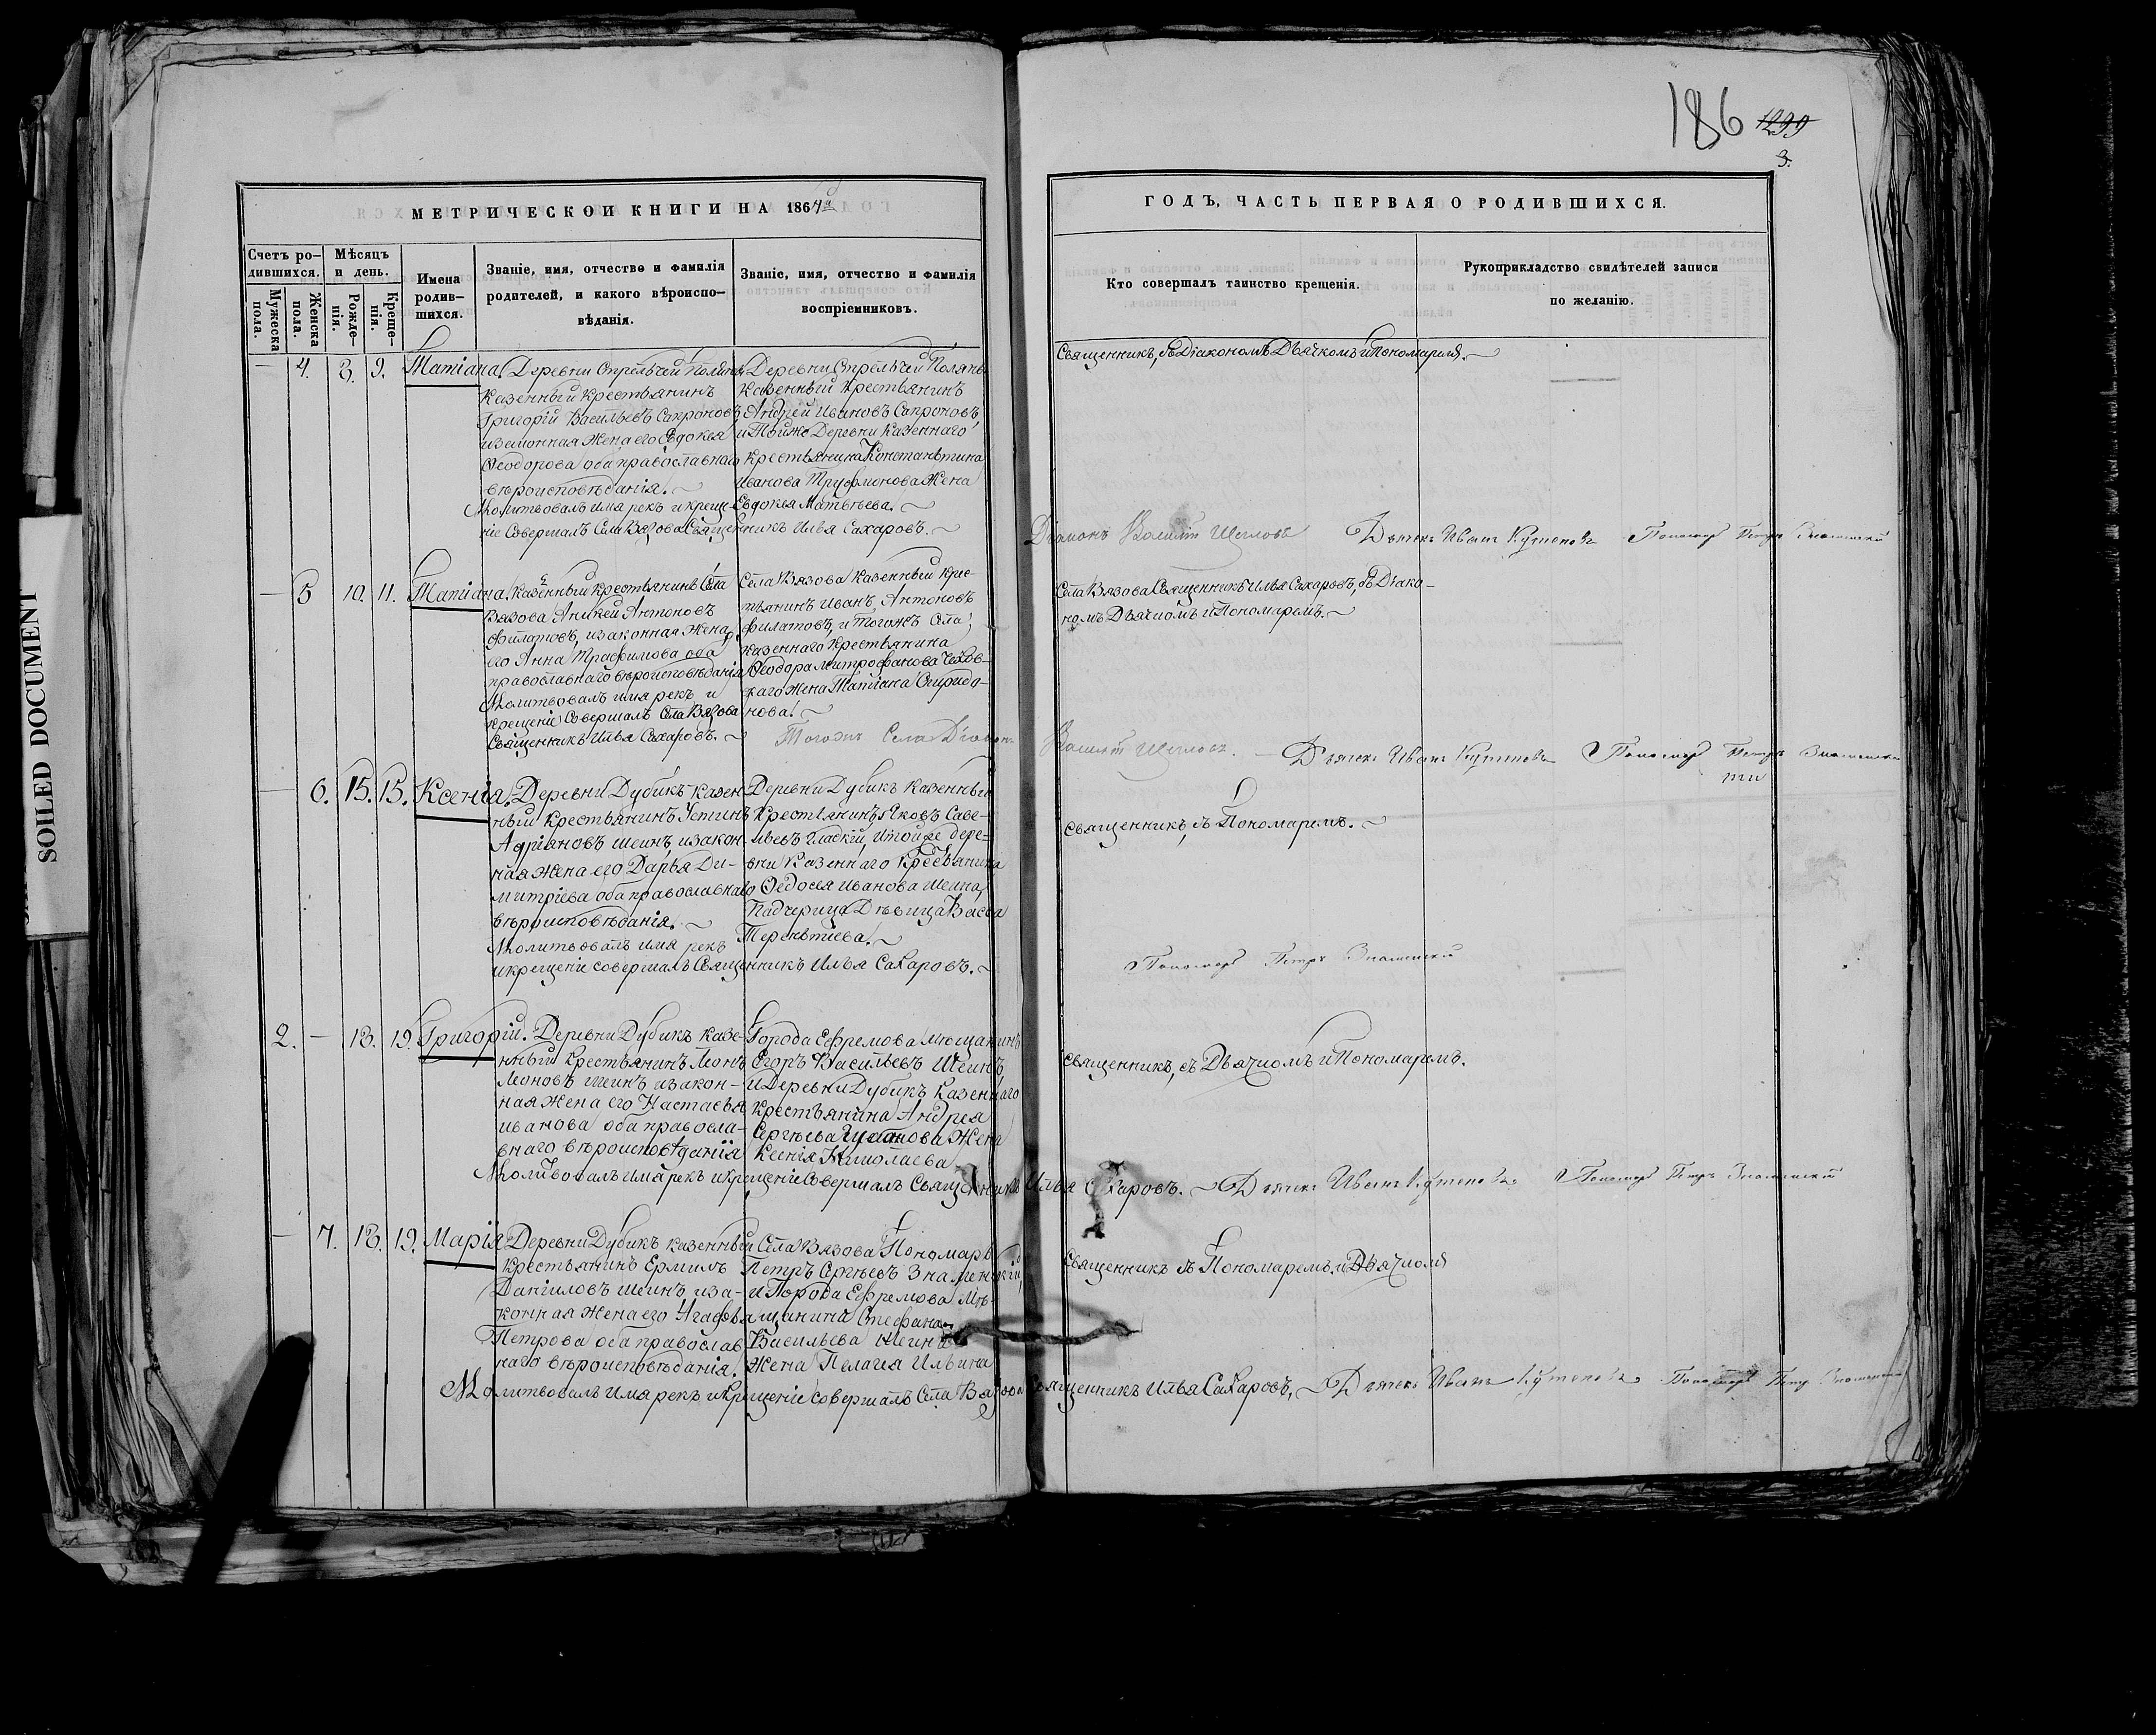 186 1299
3.
SOILED DOCUMENT
МЕТРИЧЕСКОЙ КНИГИ НА 1864й
ГОДЪ, ЧАСТЬ ПЕРВАЯ О РОДИВШИХСЯ.
Счетъ ро-
дившихся.
Мужеска
пола.
Женска
пола.
Мѣсяцъ
и день.
Рожде-
нія.
Креще-
нія.
Имена
родив-
шихся.
Званіе, имя, отчество и фамилія
родителей, и какого вѣроиспо-
вѣданія.
Званіе, имя, отчество и фамилія
воспріемниковъ.
Кто совершалъ таинство крещенія.
Рукоприкладство свидѣтелей записи
по желанію.
— 4. 8. 9. Татіана
Деревни Стрѣльчей Поляны
Казенный Крестьянинъ
Григорій Васильевъ Сапроновъ
и законная Жена его Евдокея
Ѳеодорова оба православнаго
вѣроисповѣданія.
Молитвовалъ имя рекъ и креще-
ніе Совершалъ Села Вязова Священникъ Илья Сахаровъ.
Деревни Стрѣльчей Поляны
Казенный Крестьянинъ
Андрей Ивановъ Сапроновъ,
и Тойже Деревни Казеннаго
Крестьянина Константина
Иванова Труфмонова Жена
Евдокья Матвѣева.
Священникъ, съ Діакономъ Дьячкомъ и Пономаремъ.
Діаконъ Щегловъ Дьячекъ Иванъ Кутеповъ Пономарь Петръ Знаменскій
— 5 10. 11. Татіана
Казенный Крестьянинъ Села
Вязова Аникей Антоновъ
Филатовъ, и законная Жена
его Анна Трафимова оба
православнаго вѣроисповѣданія
Молитвовалъ имя рекъ и
Крещеніе Совершалъ Села Вязова
Священникъ Илья Сахаровъ.
Села Вязова Казенный Крес-
тьянинъ Иванъ Антоновъ
Филатовъ, и Тогожъ Села,
Казеннаго Крестьянина
Ѳеодора Митрофанова Чехов-
скаго Жена Татіана Спиридо-
нова.
Села Вязова Священникъ Илья Сахаровъ, съ Діако-
номъ Дьячкомъ и Пономаремъ.
Тогожъ Села Діаконъ Щегловъ. — Дьячекъ Иванъ Кутеповъ Пономарь Петръ Знаменскій
— 6. 15. 15. Ксенія.
Деревни Дубикъ Казен-
ный Крестьянинъ Устинъ
Адріяновъ Шеинъ, и закон-
ная Жена его Дарья Ди-
митріева оба православнаго
вѣроисповѣданія.
Молитвовалъ имя рекъ
и крещеніе совершалъ Священникъ Илья Сахаровъ.
Деревни Дубикъ Казенный
Крестьянинъ Яковъ Саве-
льевъ Гладкій, и тойже дере-
вни Казеннаго Крестьянина
Ѳедосея Иванова Шеина,
Падчерица Дѣвица Васса
Терентіева.
Священникъ, съ Пономаремъ.
Пономарь Петръ Знаменскій
2. — 18. 19. Григорій.
Деревни Дубикъ Казе-
нный Крестьянинъ Леонъ
Леоновъ Шеинъ и закон-
ная Жена его Настасья
Иванова оба правосла-
внаго вѣроисповѣданія
Города Ефремова Мѣщанинъ
Егоръ Васильевъ Шеинъ,
и Деревни Дубикъ Казеннаго
Крестьянина Андрея
Сергѣева Жена
Ксенія Николаева
Священникъ, съ Дьячкомъ и Пономаремъ.
Молитвовалъ имя рекъ и крещеніе Совершалъ Священникъ Илья Сахаровъ. Дьячекъ Иванъ Кутеповъ Пономарь Петръ Знаменскій
— 7. 18. 19. Марія
Деревни Дубикъ Казенный
Крестьянинъ Ермилъ
Даніиловъ Шеинъ и за-
конная Жена его Агафья
Петрова оба православ
наго вѣроисповѣданія.
Села Вязова Пономарь
Петръ Сергѣевъ Знаменскій,
и Города Ефремова Мѣ-
щанина Стефана
Васильева Шеина
Жена Пелагея Ильина
Священникъ съ Пономаремъ и Дьячкомъ
Молитвовалъ имя рекъ и Крещеніе совершалъ Села Вязова Священникъ Илья Сахаровъ, Дьячекъ Иванъ Кутеповъ Пономарь Петръ Знаменскій